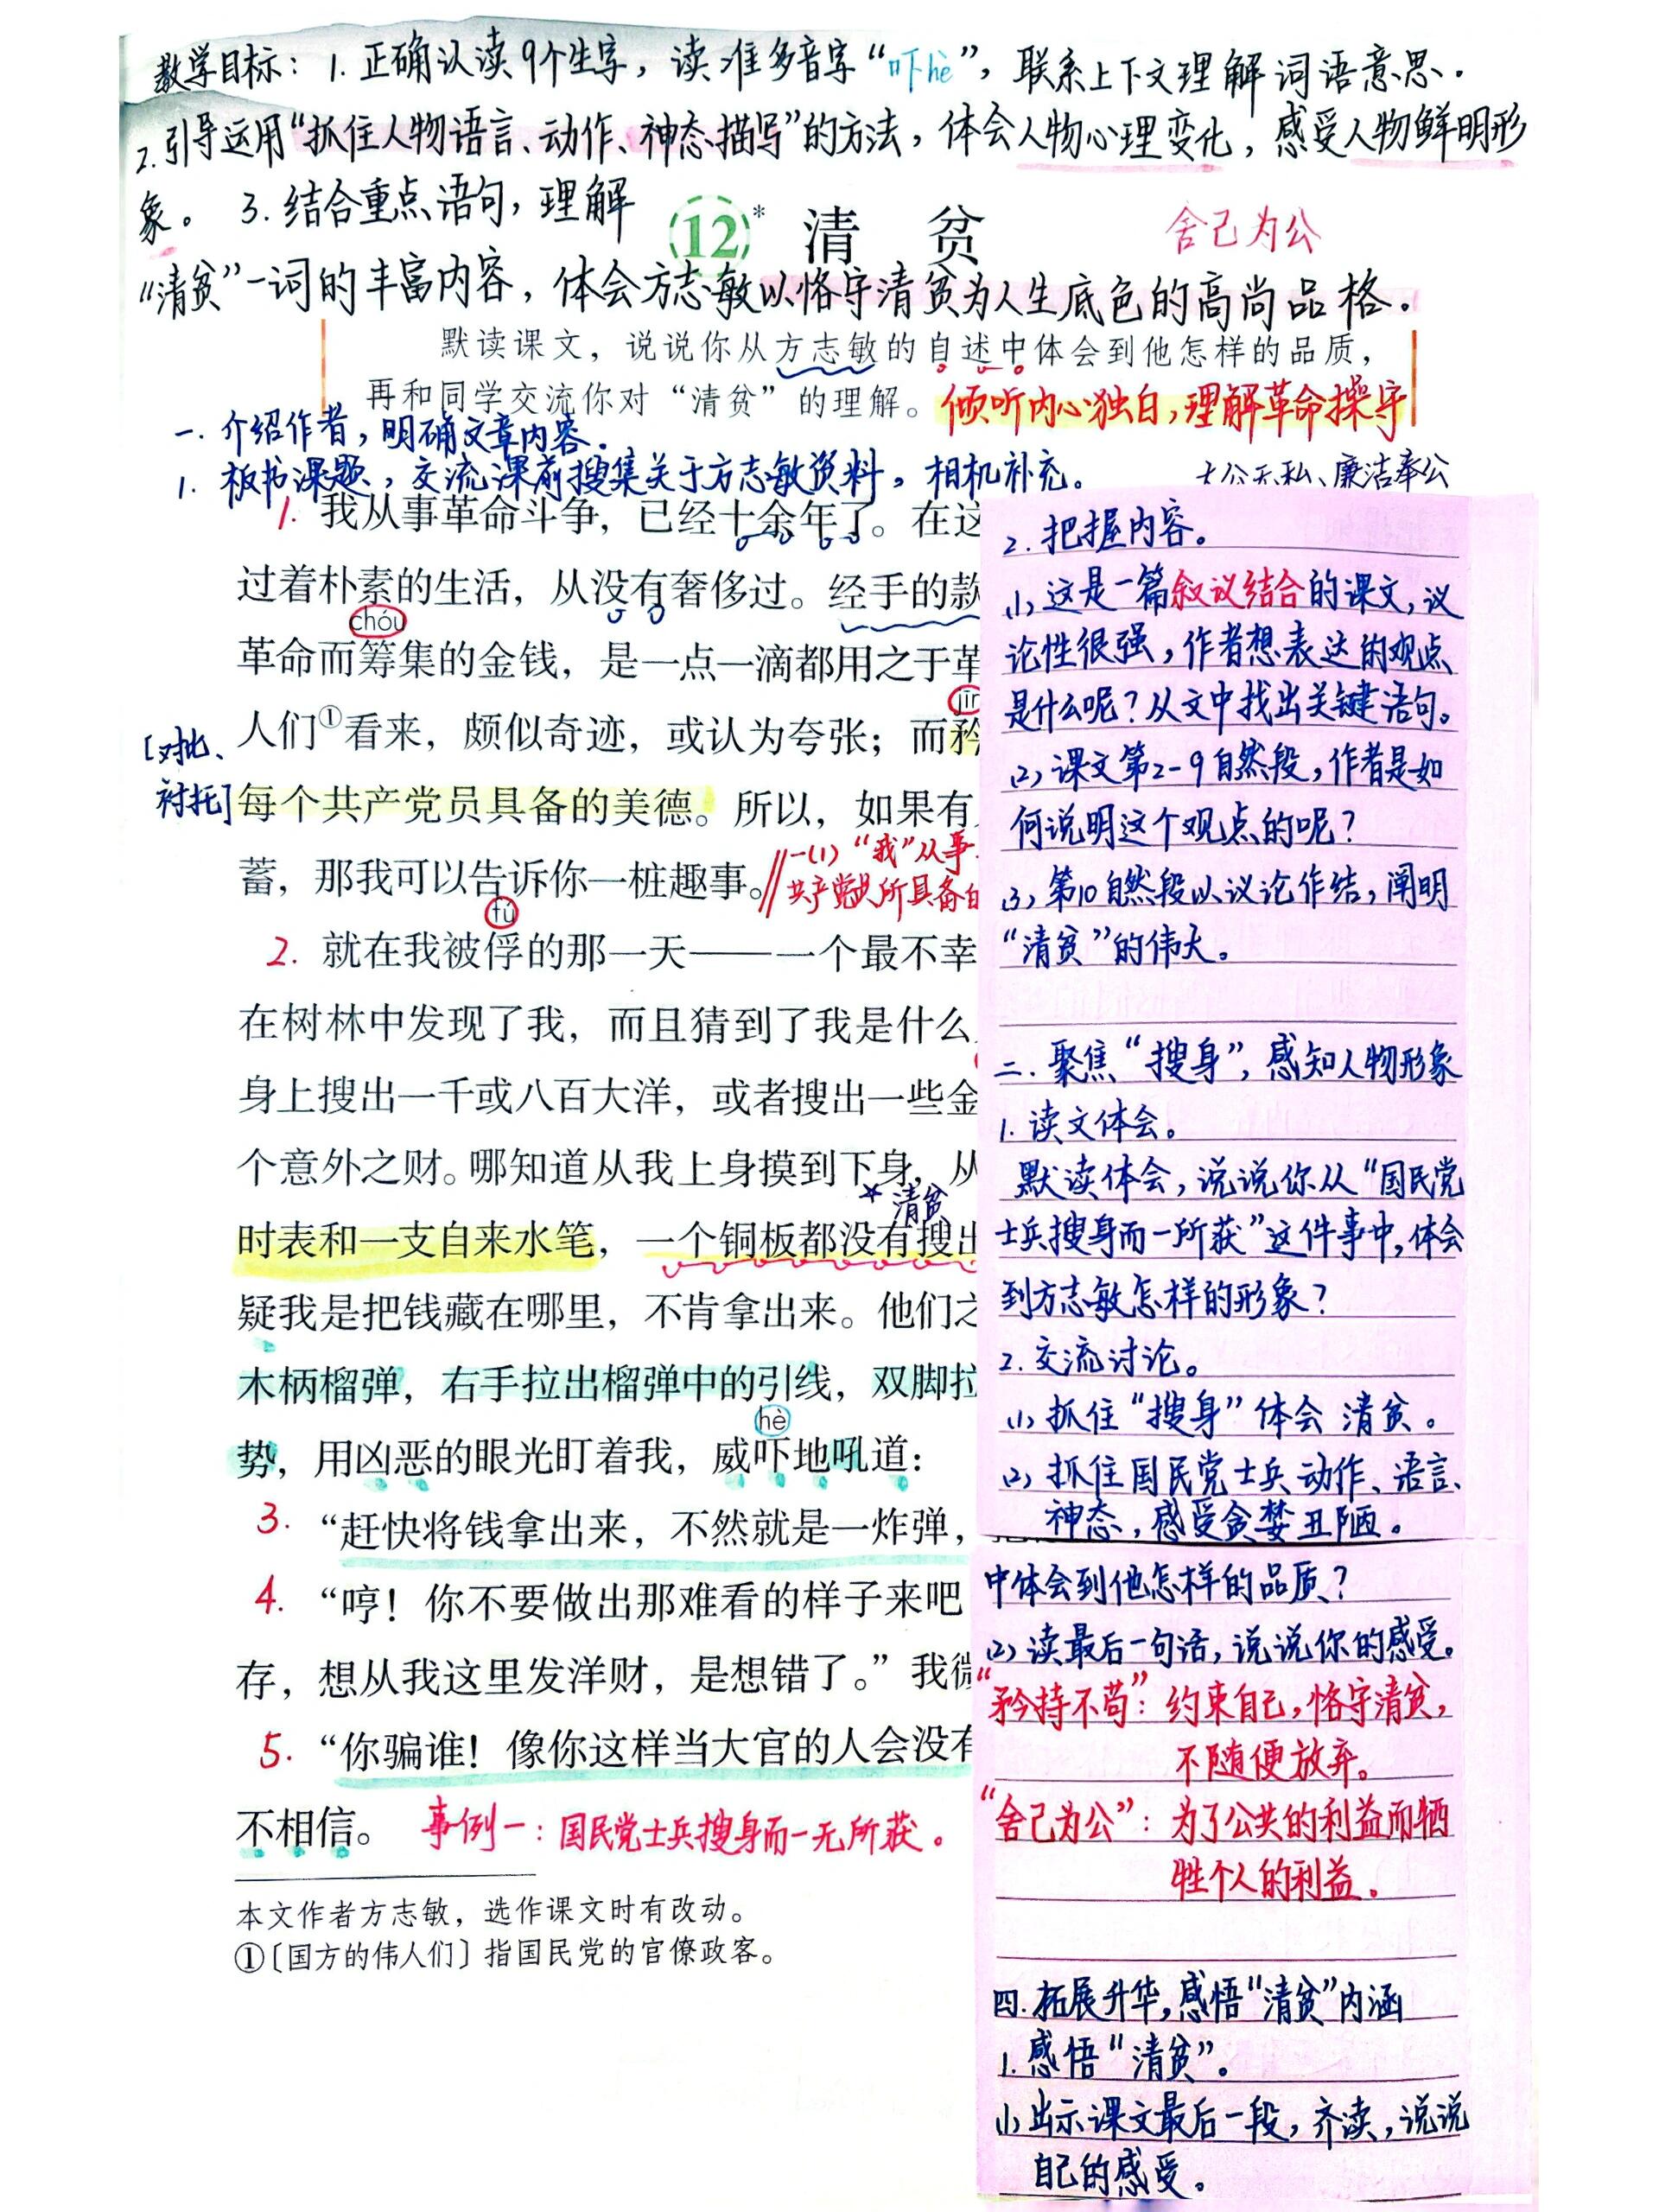 教学目标：1.正确认读9个生字，读准多音字“吓hè”，联系上下文理解词语意思.
2.引导运用“抓住人物语言、动作、神态描写”的方法，体会人物心理变化，感受人物鲜明形
象。 3.结合重点语句，理解
12* 清 贫
舍己为公
“清贫”一词的丰富内容，体会方志敏以恪守清贫为人生底色的高尚品格.
默读课文，说说你从方志敏的自述中体会到他怎样的品质，
再和同学交流你对“清贫”的理解。
倾听内心独白，理解革命操守
一. 介绍作者，明确文章内容.
1. 板书课题，交流课前搜集关于方志敏资料，相机补充。
大公无私、廉洁奉公
1. 我从事革命斗争，已经十余年了。在这
过着朴素的生活，从没有奢侈过。经手的款
chóu
革命而筹集的金钱，是一点一滴都用之于革
jīn
人们①看来，颇似奇迹，或认为夸张；而矜
[对比、
衬托]
每个共产党员具备的美德。所以，如果有
蓄，那我可以告诉你一桩趣事。
一(1)“我”从事
共产党员所具备的
fú
2. 就在我被俘的那一天——一个最不幸
在树林中发现了我，而且猜到了我是什么
身上搜出一千或八百大洋，或者搜出一些金
个意外之财。哪知道从我上身摸到下身，从
★清贫
时表和一支自来水笔，一个铜板都没有搜出
疑我是把钱藏在哪里，不肯拿出来。他们之
木柄榴弹，右手拉出榴弹中的引线，双脚拉
hè
势，用凶恶的眼光盯着我，威吓地吼道：
3. “赶快将钱拿出来，不然就是一炸弹，
4. “哼！你不要做出那难看的样子来吧
存，想从我这里发洋财，是想错了。”我微
5. “你骗谁！像你这样当大官的人会没有
不相信。
事例一：国民党士兵搜身而一无所获。
本文作者方志敏，选作课文时有改动。
①〔国方的伟人们〕指国民党的官僚政客。
2. 把握内容。
(1)这是一篇叙议结合的课文，议
论性很强，作者想表达的观点
是什么呢？从文中找出关键语句。
(2)课文第2-9自然段，作者是如
何说明这个观点的呢？
(3)第10自然段以议论作结，阐明
“清贫”的伟大。
二. 聚焦“搜身”，感知人物形象
1. 读文体会。
默读体会，说说你从“国民党
士兵搜身而一所获”这件事中，体会
到方志敏怎样的形象？
2. 交流讨论。
(1)抓住“搜身”体会 清贫。
(2)抓住国民党士兵动作、语言、
神态，感受贪婪丑陋。
中体会到他怎样的品质？
(2)读最后一句话，说说你的感受。
“矜持不苟”：约束自己，恪守清贫，
不随便放弃。
“舍己为公”：为了公共的利益而牺
牲个人的利益。
四. 拓展升华，感悟“清贫”内涵
1. 感悟“清贫”。
(1)出示课文最后一段，齐读，说说
自己的感受。